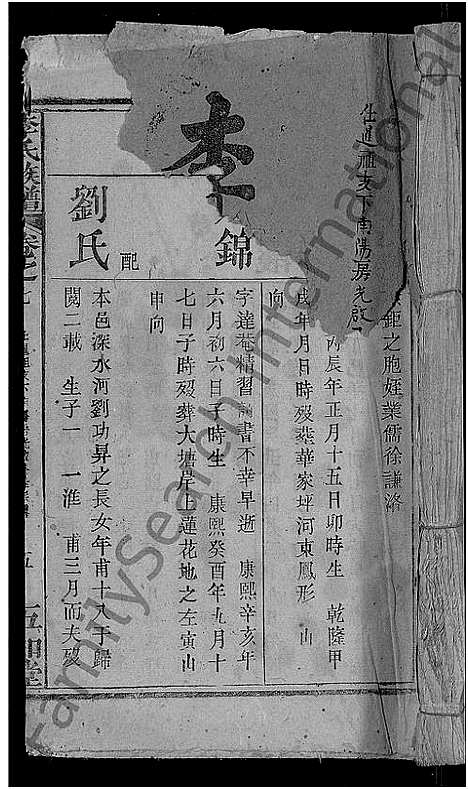 仕進祖支下南陽房先啟
鉅之胞姪業儒徐謙洛
丙辰年正月十五日卯時生 乾隆甲
戌年月日時歿葬華家坪河東鳳形 山
向
李
錦
字達菴精習詩書不幸早逝 康熙辛亥年
六月初六日子時生 康熙癸酉年九月十
七日子時歿葬大塘岸上蓮花地之左寅山
申向
劉氏
配
本邑深水河劉功昇之長女年甫十八于歸
閱二載 生子一 一淮 甫三月而夫歿
李氏族譜 卷之
五 五知堂
FamilySearch International